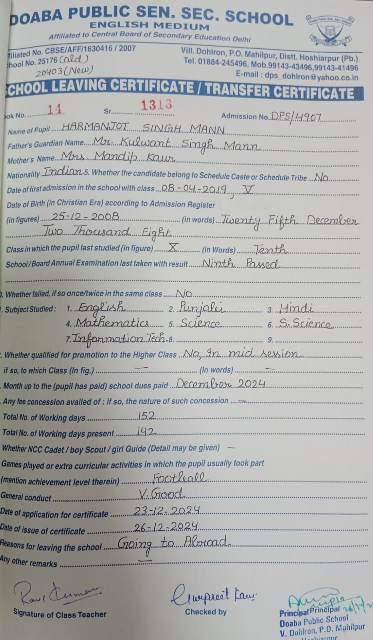 DOABA PUBLIC SEN. SEC. SCHOOL
ENGLISH MEDIUM
Affiliated to Central Board of Secondary Education Delhi
ffiliated No. CBSE/AFF/1630416 / 2007
Vill. Dohlron, P.O. Mahilpur, Distt. Hoshiarpur (Pb.)
hool No. 25176 (Old)
Tel. 01884-245496, Mob.99143-43496,99143-41496
20403 (New)
E-mail : dps_dohlron@yahoo.co.in
CHOOL LEAVING CERTIFICATE / TRANSFER CERTIFICATE
ook No. 14 Sr. 1313 Admission No. DPS/4907
Name of Pupil HARMANJOT SINGH MANN
Father's Guardian Name Mr. Kulwant Singh Mann
Mother's Name Mrs. Mandip Kaur
Nationality Indian 5. Whether the candidate belong to Schedule Caste or Schedule Tribe No
Date of first admission in the school with class 08-04-2019, V
Date of Birth (in Christian Era) according to Admission Register
(in figures) 25-12-2008 (in words) Twenty Fifth December
Two Thousand Eight
Class in which the pupil last studied (in figure) X (in Words) Tenth
School/Board Annual Examination last taken with result Ninth Passed
Whether failed, if so once/twice in the same class No
Subject Studied : 1. English 2. Punjabi 3. Hindi
4. Mathematics 5. Science 6. S. Science
7. Information Tech. 8. 9.
Whether qualified for promotion to the Higher Class No, In mid session
if so, to which Class (in fig.) — (In words) —
Month up to the (pupil has paid) school dues paid December 2024
Any fee concession availed of ; if so, the nature of such concession —
Total No. of Working days 152
Total No. of Working days present 142
Whether NCC Cadet / boy Scout / girl Guide (Detail may be given) —
Games played or extra curricular activities in which the pupil usually took part
(mention achievement level therein) Football
General conduct V. Good
Date of application for certificate 23-12-2024
Date of issue of certificate 26-12-2024
Reasons for leaving the school Going to Abroad
Any other remarks —
Gurpreet Kaur
Signature of Class Teacher
Checked by
Principal Principal
Doaba Public School
V. Dohlron, P.O. Mahilpur